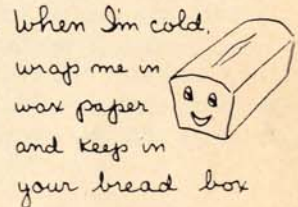 When I'm cold,
wrap me in
wax paper
and keep in
your bread box